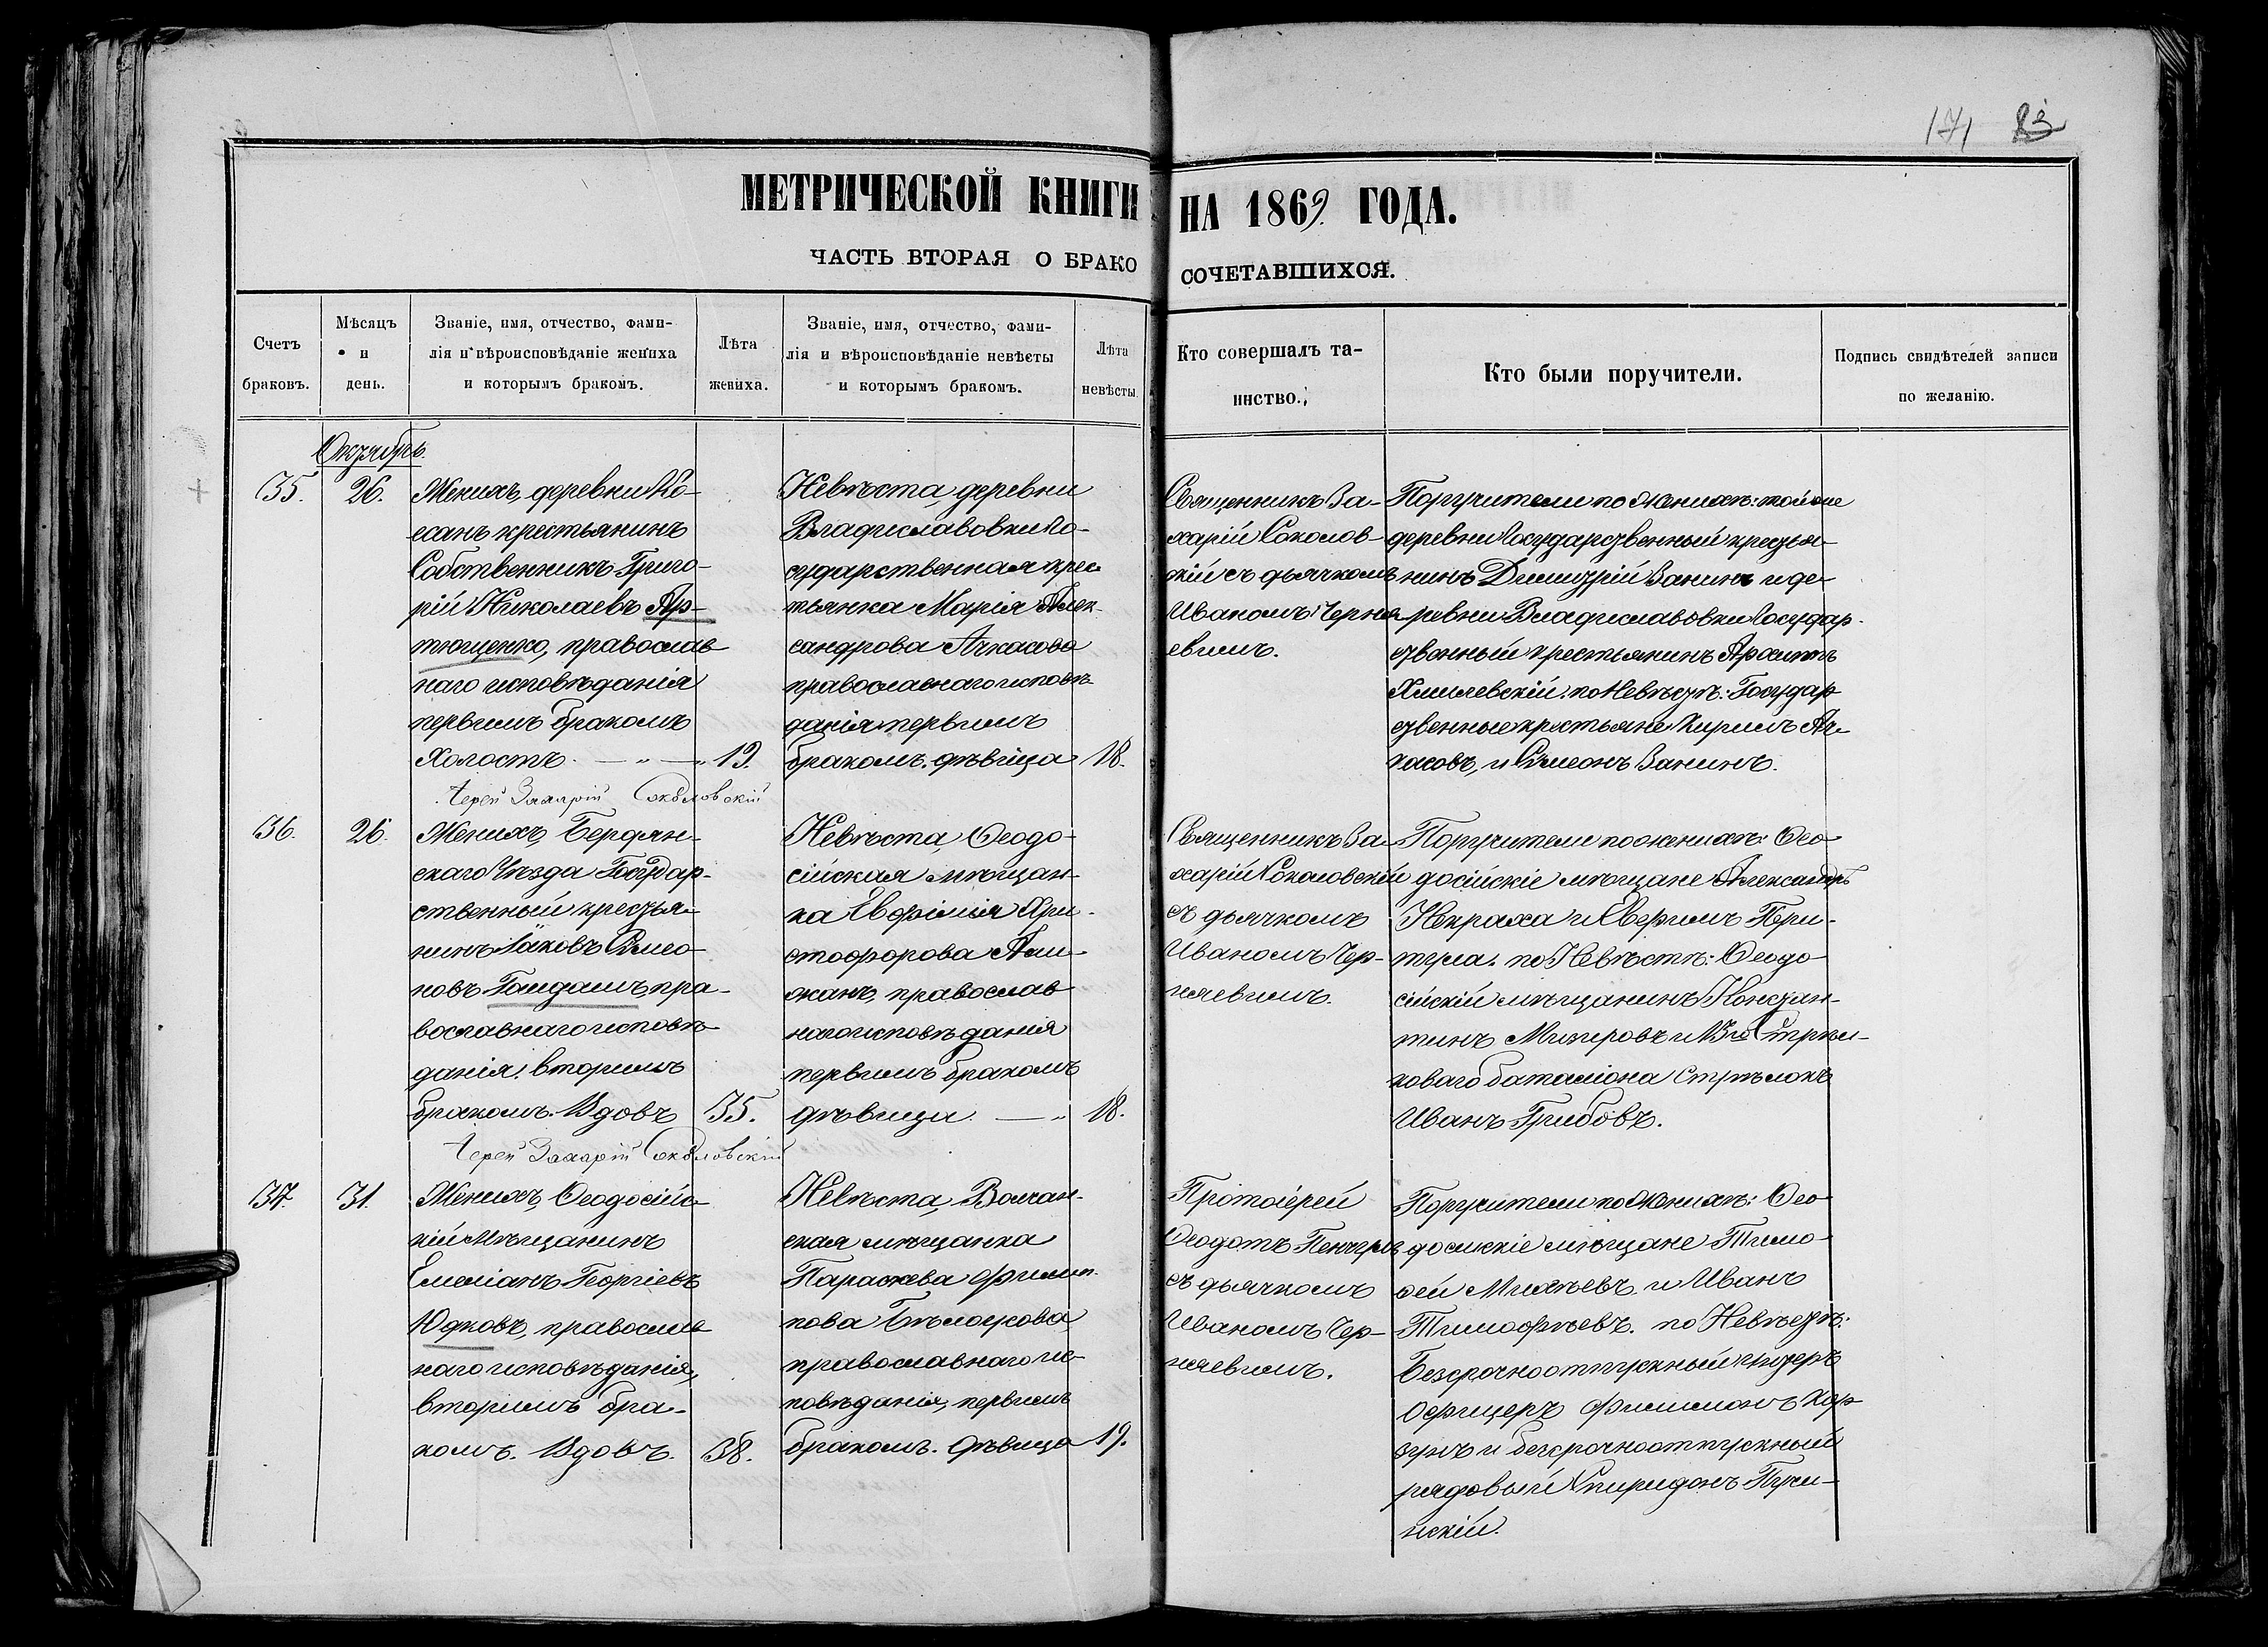 171 83
МЕТРИЧЕСКОЙ КНИГИ НА 1869 ГОДА.
ЧАСТЬ ВТОРАЯ О БРАКОСОЧЕТАВШИХСЯ.
Счетъ
браковъ.
Мѣсяцъ
и
день.
Званіе, имя, отчество, фами-
лія и вѣроисповѣданіе жениха
и которымъ бракомъ.
Лѣта
жениха.
Званіе, имя, отчество, фами-
лія и вѣроисповѣданіе невѣсты
и которымъ бракомъ.
Лѣта
невѣсты.
Кто совершалъ та-
инство.
Кто были поручители.
Подпись свидѣтелей записи
по желанію.
Октябрь.
35.
26.
Женихъ, деревни Ко-
санъ крестьянинъ
Собственникъ Григо-
рій Николаевъ Ар-
тющенко, православ
наго исповѣданія
первымъ бракомъ
Холостъ. — „ — „ 19.
Іерей Захарій Соколовскій
Невѣста, деревни
Владиславовки Го-
сударственная крес
тьянка Марія Алек-
сандрова Ачкасова
православнаго исповѣ
данія первымъ
бракомъ. дѣвица 18.
Священникъ За-
харій Соколов-
скій съ дьячкомъ
Иваномъ Черня
евымъ.
Поручители по Женихѣ: той же
деревни Государственный кресть-
нинъ Димитрій Ванинъ и де-
ревни Владиславовки Государ-
ственный крестьянинъ
по Невѣстѣ: Государ
ственные крестьяне Кирилъ Ач-
касовъ, и Симеонъ Ванинъ.
36.
26.
Женихъ, Бердян-
скаго Уѣзда Государ-
ственный крестья-
нинъ Іаковъ Симео-
новъ пра-
вославнаго исповѣ-
данія, вторымъ
бракомъ. Вдовъ 35.
Іерей Захарій Соколовскій
Невѣста, Ѳеодо-
сійская мѣщан-
ка Евфимія Хри-
стофорова
православ
наго исповѣданія
первымъ бракомъ
дѣвица. — „ 18.
Священникъ За-
харій Соколовскій
съ дьячкомъ
Иваномъ Чер-
няевымъ.
Поручители по женихѣ: Ѳео-
досійскіе мѣщане Александръ
Некраха и
по Невѣстѣ: Ѳеодо-
сійскій мѣщанинъ Констан-
тинъ и 13го Стрѣл-
коваго баталіона Стрѣлокъ
Иванъ Грибовъ.
37.
31.
Женихъ, Ѳеодосійс-
кій Мѣщанинъ
Емеліанъ Георгіевъ
Юдковъ, православ
наго исповѣданія,
вторымъ бра-
комъ. Вдовъ. 38.
Невѣста, Волчан-
ская мѣщанка
Параскева Филип-
пова
православнаго ис-
повѣданія, первымъ
бракомъ. дѣвица 19.
Протоіерей
Ѳеодотъ
съ дьячкомъ
Иваномъ Чер-
няевымъ.
Поручители по Женихѣ: Ѳео-
досискіе мѣщане Тимо-
ѳей Михѣевъ и Иванъ
Тимофѣевъ. по Невѣстѣ:
Безсрочноотпускный Унтеръ
Офицеръ
и безсрочноотпускный
рядовый Спиридонъ Пучи-
нскій.